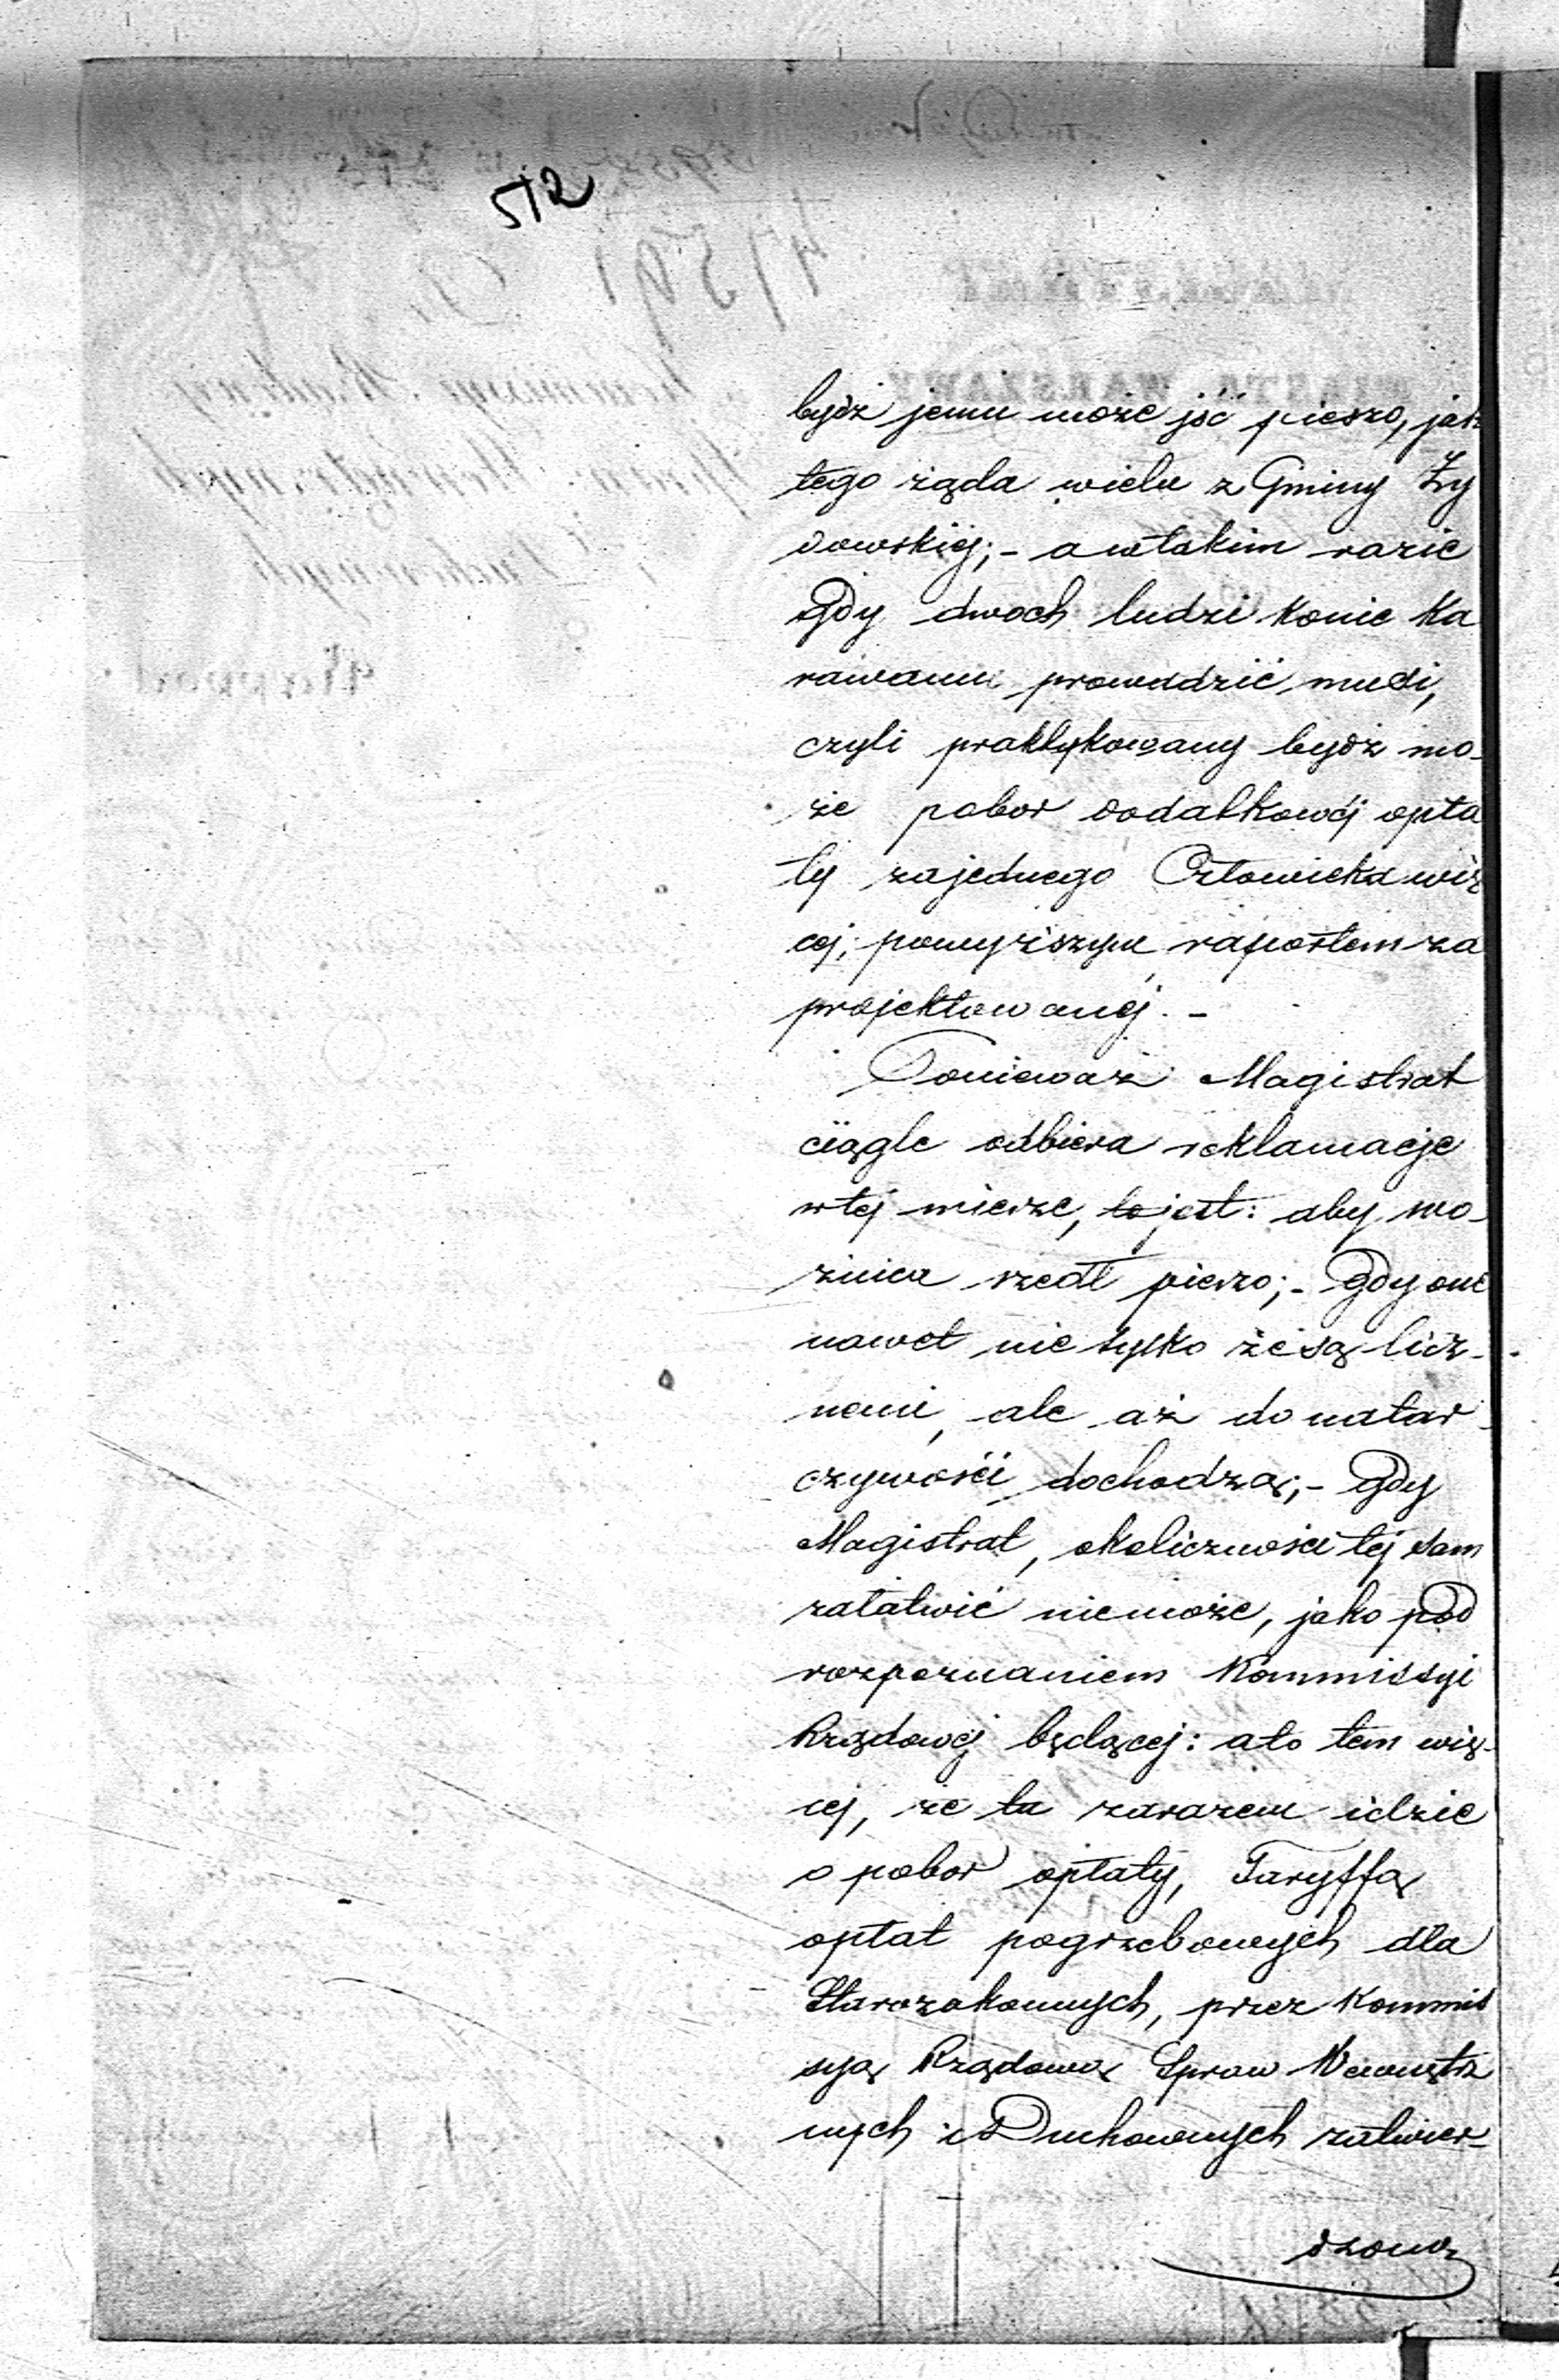 512
bydź jemu może jść pieszo, jak
tego żąda wielu z Gminy Ży
dowskiéj; - a wtakim razie
gdy dwoch ludzi konie Ka
rawanu prowadzić musi,
czyli praktykowany bydź mo-
że pobor dodatkowéj opła
ty zajednego Człowieka wię
cej, powyższym rapportem za
projektowanéj. -
Ponieważ Magistrat
ciągle odbiera reklamacje
wtej mierze, to jest: aby wo-
źnica szedł pieszo; - gdy one
nawet nie tylko że są licz-
nemi, ale aż do natar-
czywości dochodzą; - gdy
Magistrat, okoliczności tej sam
załatwić niemoże, jako pod
rozpoznaniem Kommissyi
Rządowéj będącej: ato tem wię-
cej, że tu zarazem idzie
o pobor opłaty, Taryffą
opłat pogrzebowych dla
Starozakonnych, przez Kommis
syą Rządową Spraw Wewnętrz
nych i Duchownych zatwier-
dzoną